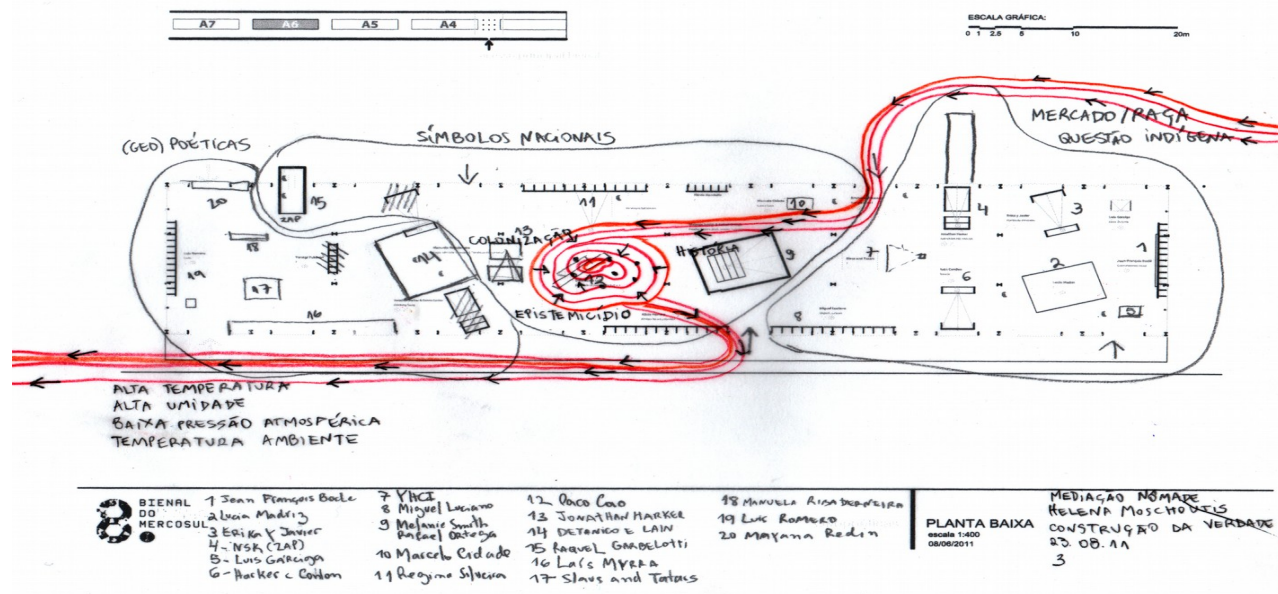 A7 A6 A5 A4
ESCALA GRÁFICA:
0 1 2.5 5 10 20m
MERCADO/RAÇA
QUESTÃO INDÍGENA
SÍMBOLOS NACIONAIS
(GEO) POÉTICAS
20
15
ZAP
11
10
4
3
13
COLONIZAÇÃO
HISTÓRIA
18
14
9
7
1
19
12
6
2
17
EPISTEMICÍDIO
16
8
5
ALTA TEMPERATURA
ALTA UMIDADE
BAIXA PRESSÃO ATMOSFÉRICA
TEMPERATURA AMBIENTE
8
BIENAL
DO
MERCOSUL
1 Jean François Bocle
2 Lucia Madriz
3 Erika y Javier
4 - NSK (ZAP)
5 - Luis Gárciga
6 - Harker e Conlon
7 YACI
8 Miguel Luciano
9 Melanie Smith
Rafael Ortega
10 Marcelo Cidade
11 Regina Silveira
12 Paco Cao
13 JONATHAN HARKER
14 DETANICO E LAIN
15 RAQUEL GARBELOTTI
16 Laís MYRRA
17 Slavs and Tatars
18 MANUELA RIBADENEIRA
19 LUIS ROMERO
20 Mayana Redin
PLANTA BAIXA
escala 1:400
08/06/2011
MEDIAÇÃO NÔMADE
HELENA MOSCHOUTIS
CONSTRUÇÃO DA VERDADE
23.08.11
3